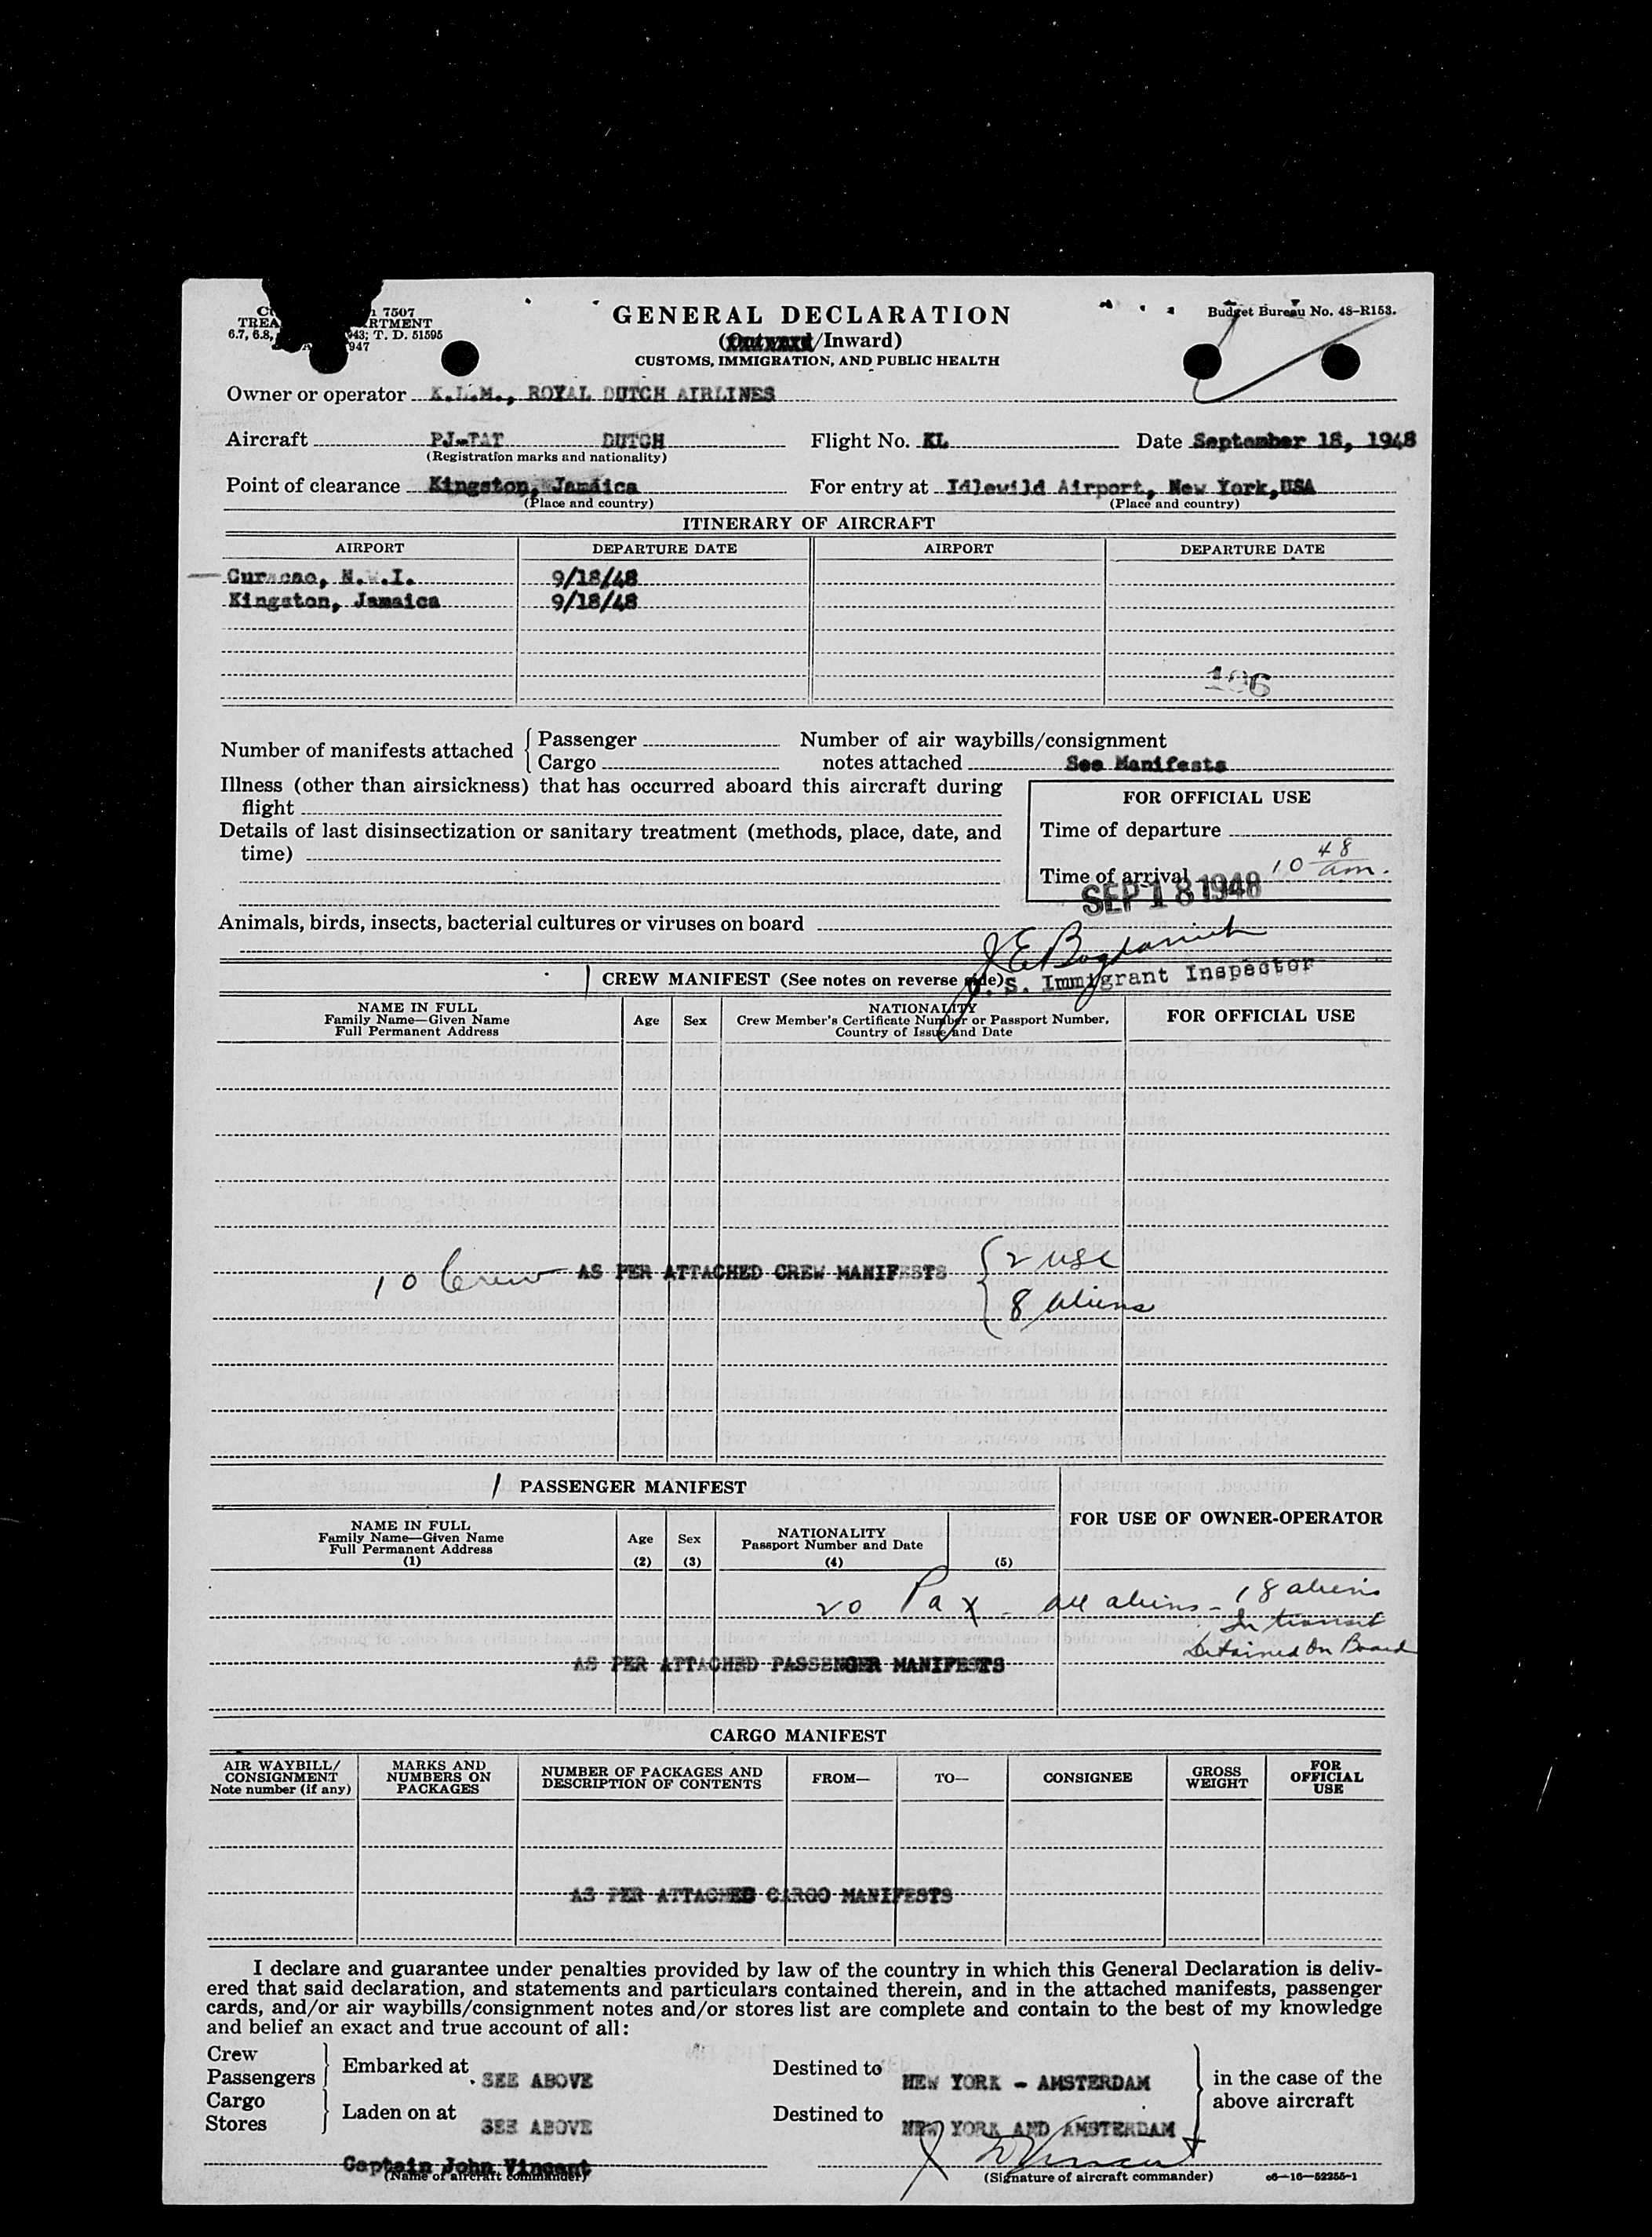 7507
TREA RTMENT
6.7, 6.8, 943; T. D. 51595
947
GENERAL DECLARATION
(Outward/Inward)
CUSTOMS, IMMIGRATION, AND PUBLIC HEALTH
Budget Bureau No. 48-R153.
Owner or operator K.L.M., ROYAL DUTCH AIRLINES
Aircraft PJ-TAT DUTCH Flight No. KL Date September 18, 1948
(Registration marks and nationality)
Point of clearance Kingston, Jamaica For entry at Idlewild Airport, New York, USA
(Place and country) (Place and country)
ITINERARY OF AIRCRAFT
AIRPORT DEPARTURE DATE AIRPORT DEPARTURE DATE
Curacao, N.W.I. 9/18/48
Kingston, Jamaica 9/18/48
Number of manifests attached { Passenger Number of air waybills/consignment
Cargo notes attached See Manifests
Illness (other than airsickness) that has occurred aboard this aircraft during
flight
FOR OFFICIAL USE
Details of last disinsectization or sanitary treatment (methods, place, date, and
time)
Time of departure
Time of arrival 10 48 am.
SEP 18 1948
Animals, birds, insects, bacterial cultures or viruses on board
U. S. Immigrant Inspector
/ CREW MANIFEST (See notes on reverse side)
NAME IN FULL
Family Name—Given Name
Full Permanent Address
Age Sex
NATIONALITY
Crew Member's Certificate Number or Passport Number,
Country of Issue and Date
FOR OFFICIAL USE
10 Crew AS PER ATTACHED CREW MANIFESTS { 2 USC
8 aliens
/ PASSENGER MANIFEST
FOR USE OF OWNER-OPERATOR
NAME IN FULL
Family Name—Given Name
Full Permanent Address
(1)
Age
(2)
Sex
(3)
NATIONALITY
Passport Number and Date
(4) (5)
20 Pax - all aliens - 18 aliens
In transit
Detained On Board
AS PER ATTACHED PASSENGER MANIFESTS
CARGO MANIFEST
AIR WAYBILL/
CONSIGNMENT
Note number (if any)
MARKS AND
NUMBERS ON
PACKAGES
NUMBER OF PACKAGES AND
DESCRIPTION OF CONTENTS
FROM—
TO—
CONSIGNEE
GROSS
WEIGHT
FOR
OFFICIAL
USE
AS PER ATTACHED CARGO MANIFESTS
I declare and guarantee under penalties provided by law of the country in which this General Declaration is deliv-
ered that said declaration, and statements and particulars contained therein, and in the attached manifests, passenger
cards, and/or air waybills/consignment notes and/or stores list are complete and contain to the best of my knowledge
and belief an exact and true account of all:
Crew
Passengers
Embarked at SEE ABOVE Destined to NEW YORK - AMSTERDAM
Cargo
Stores
Laden on at SEE ABOVE Destined to NEW YORK AND AMSTERDAM
in the case of the
above aircraft
Captain John Vincent
(Name of aircraft commander)
(Signature of aircraft commander) c6—16—52255-1